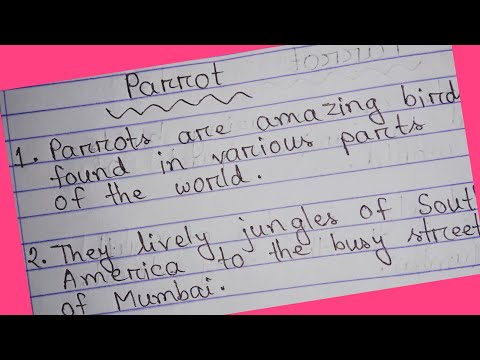 Parrot
1. Parrots are amazing bird
found in various parts
of the world.
2. They lively jungles of Sout
America to the busy street
of Mumbai.